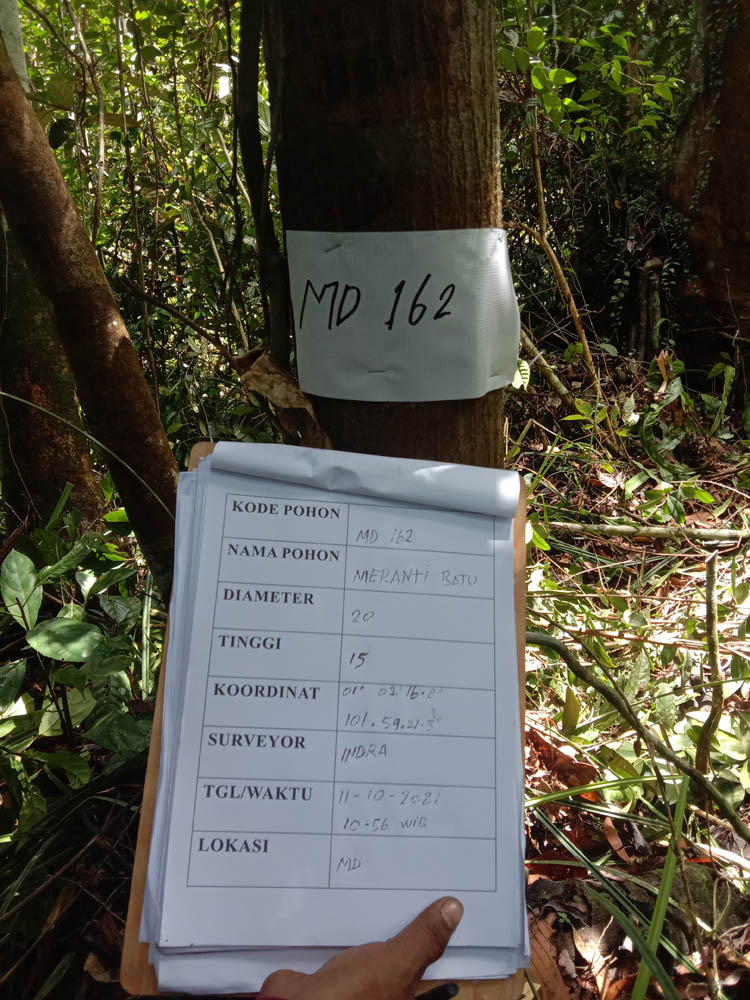 MD 162
KODE POHON MD 162
NAMA POHON MERANTI BATU
DIAMETER 20
TINGGI 15
KOORDINAT 01° 02' 16.
101. 59.21.
SURVEYOR INDRA
TGL/WAKTU 11-10-2021
10.56 WIB
LOKASI MD